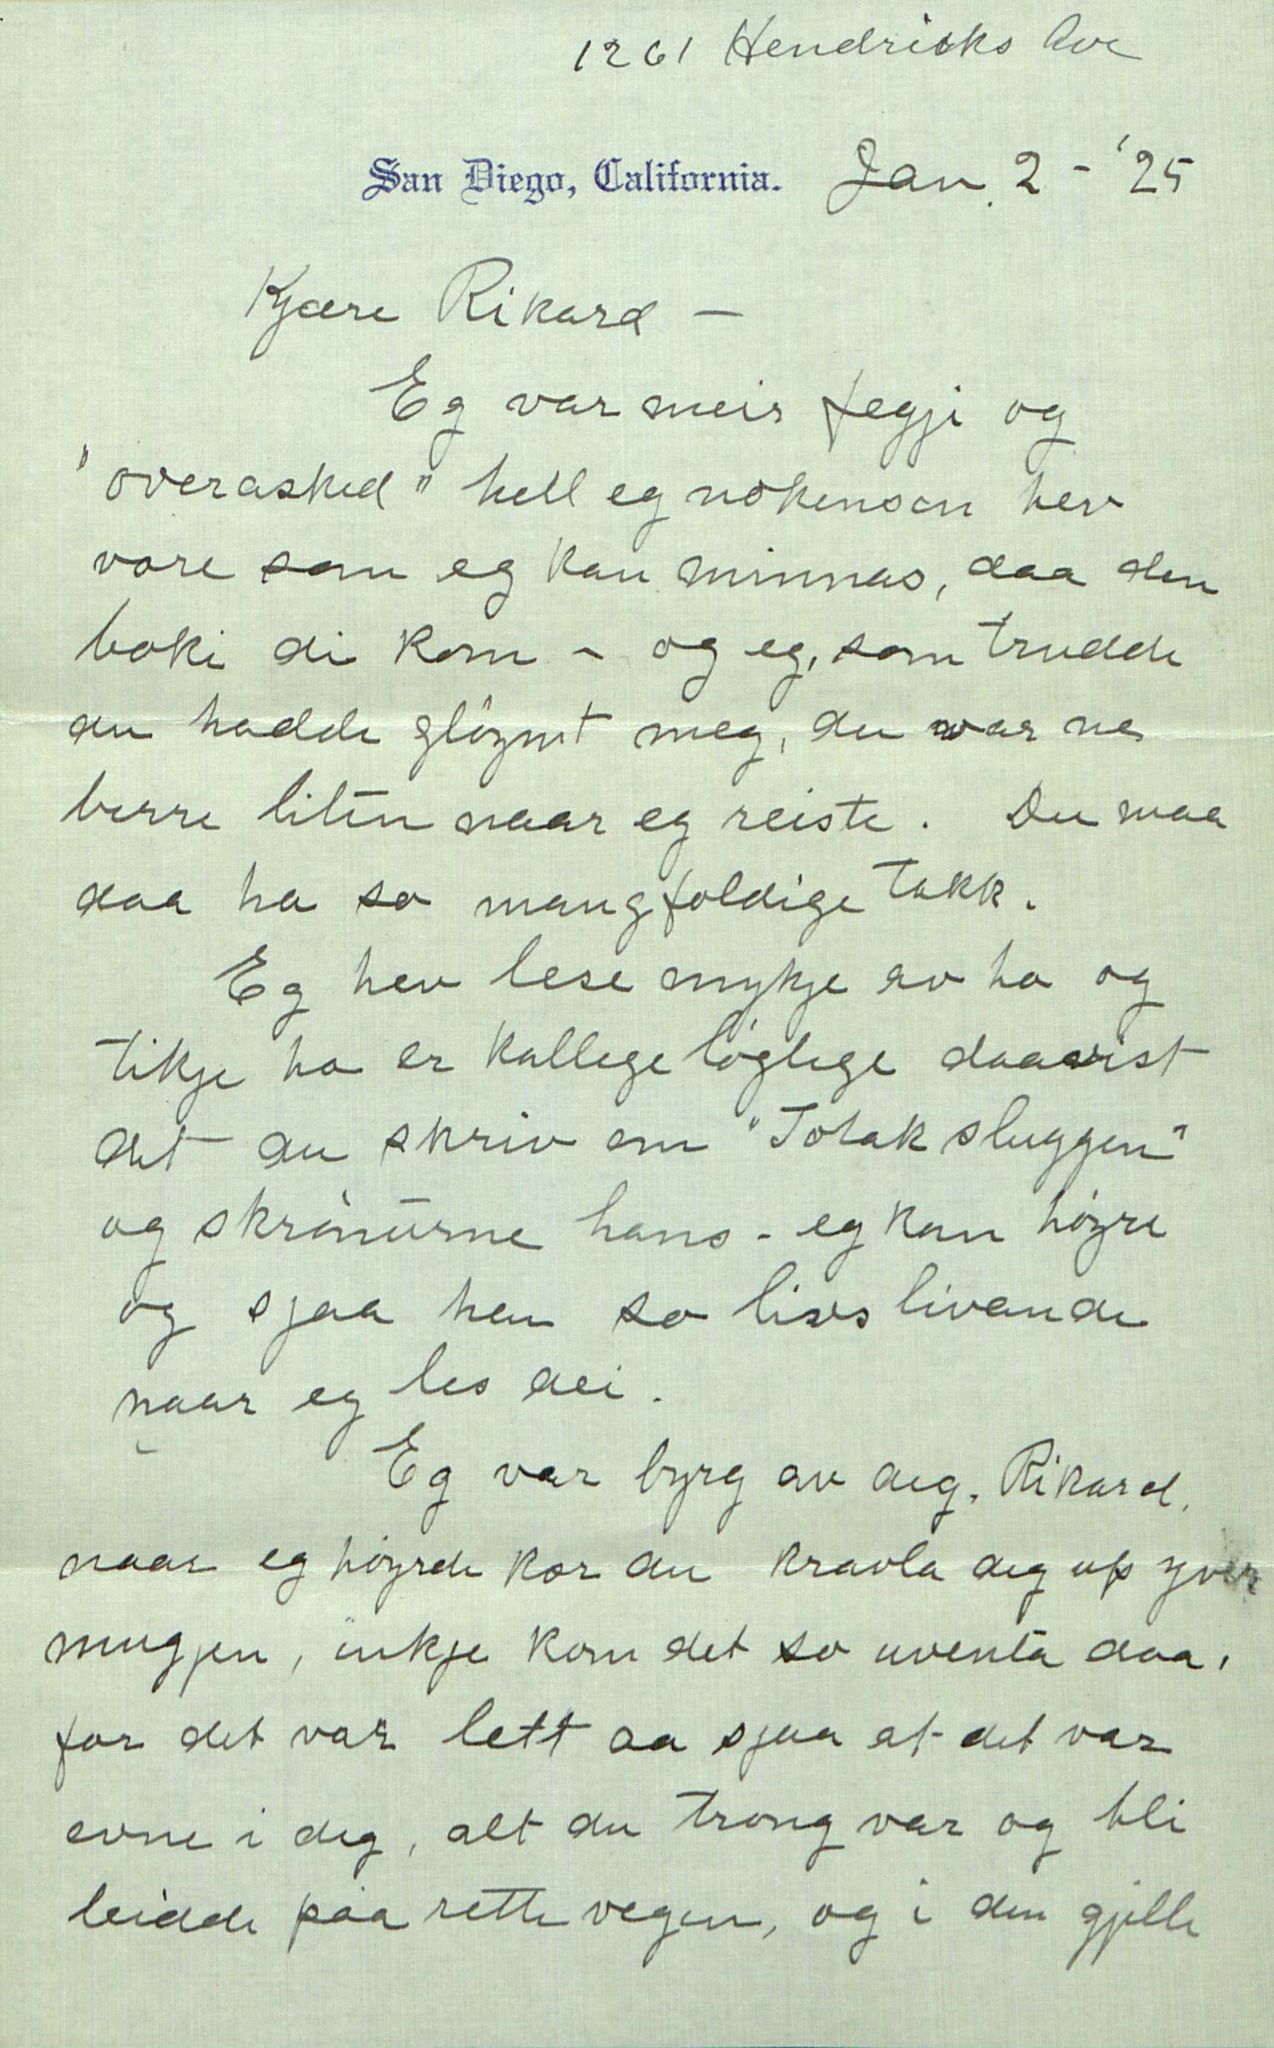 1261 Hendricks Ave
San Diego, California. Jan. 2 - '25
Kjære Rikard —
Eg var meir fegji og
"overasked" hell eg nokensen hev
vore som eg kan minnas, daa den
boki di kom - og eg, som trudde
du hadde gløymt meg, du var ne
berre liten naar eg reiste. Du maa
daa ha so mangfoldige takk.
Eg hev lese mykje av ho og
tikje ho er kallege løglege daavist
det du skriv om "Totaksluggen"
og skrønurne hans - eg kan høyre
og sjaa han so livs livande
naar eg les dei.
Eg var byrg av deg, Rikard,
naar eg høyrde kor du kravla deg up yver
mugjen, inkje kom det so uventa daa,
for det var lett aa sjaa at det var
evne i deg, alt du trong var og bli
leidde paa rette vegen, og i den gjille